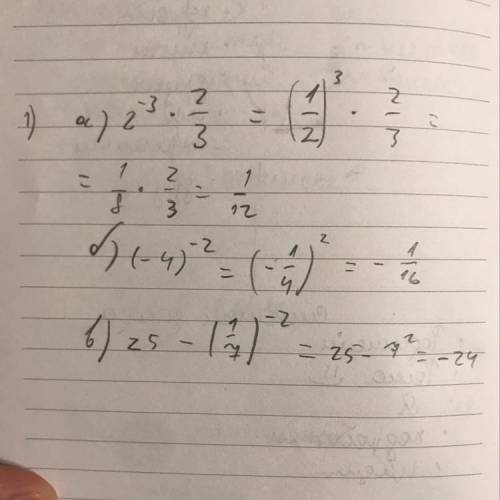 1) а) 2^-3 · 2/3 = (1/2)^3 · 2/3 =
= 1/8 · 2/3 = 1/12
б) (-4)^-2 = (-1/4)^2 = - 1/16
в) 25 - (1/7)^-2 = 25 - 7^2 = -24